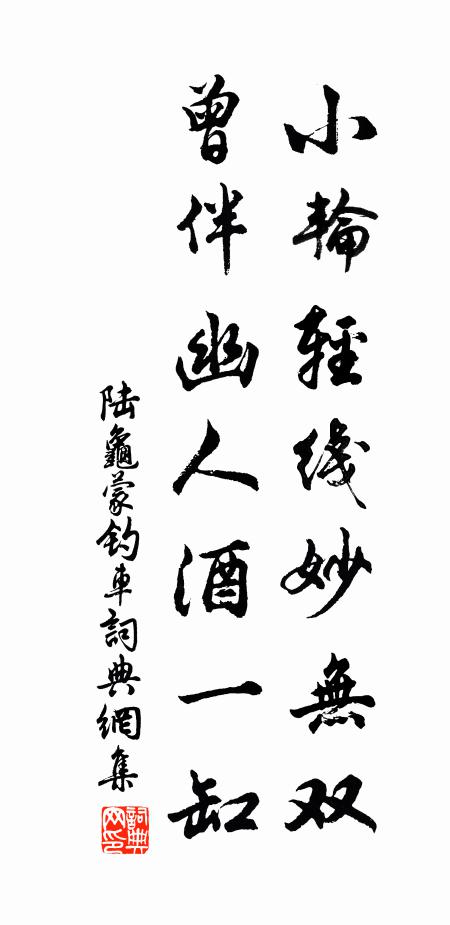 小輪輕綫妙無双
曾伴幽人酒一缸
陆龜蒙钓車詞典網集
詞典网印